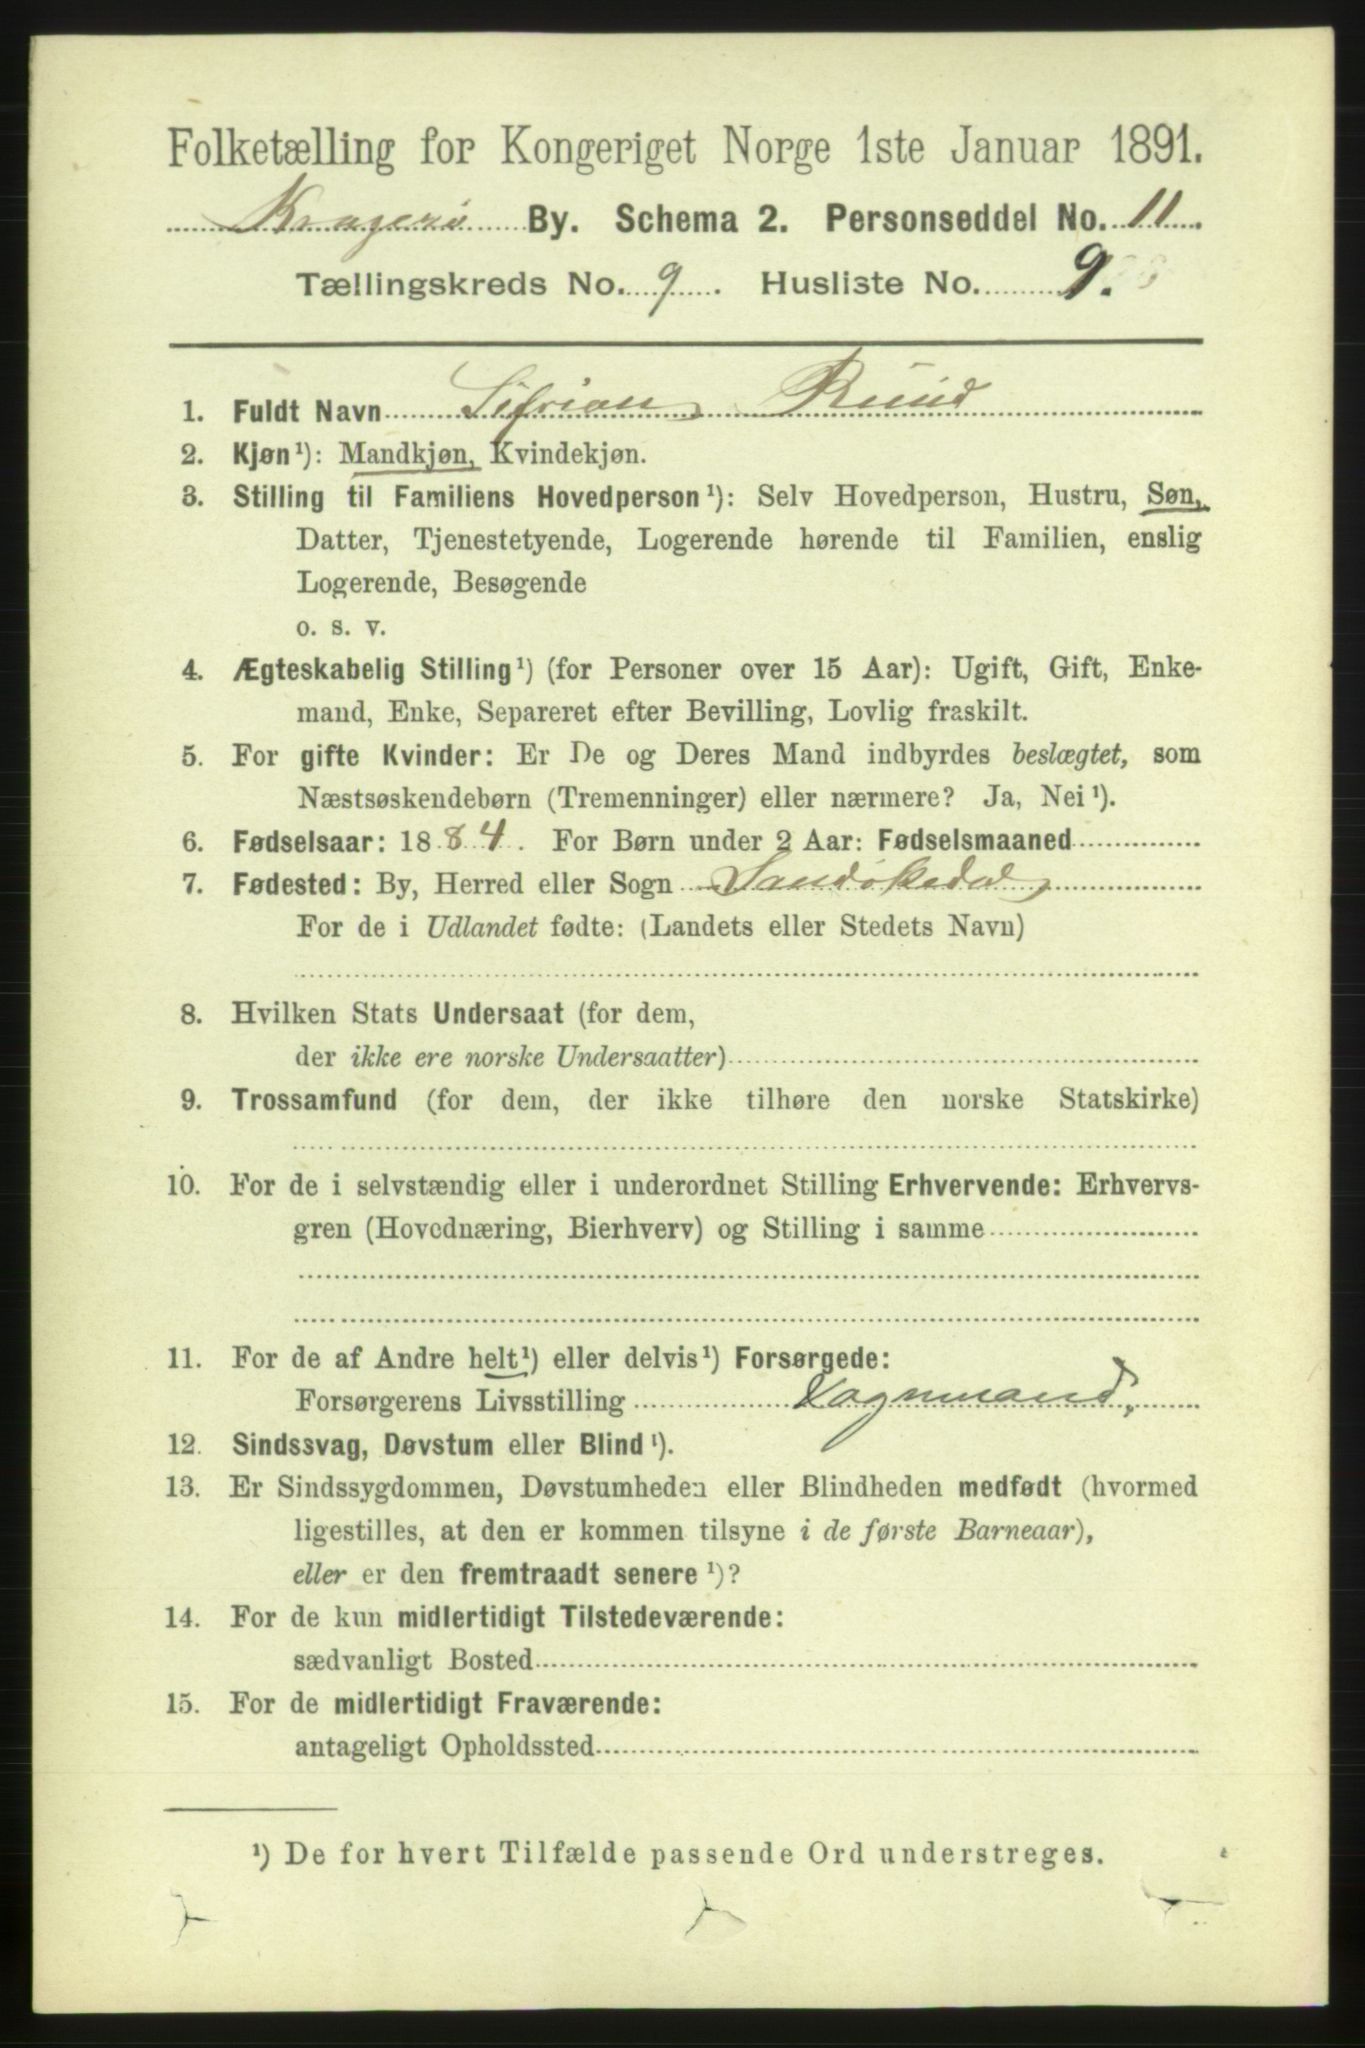 Folketælling for Kongeriget Norge 1ste Januar 1891.
Kragerø By. Schema 2. Personseddel No. 11.
Tællingskreds No. 9. Husliste No. 9.
1. Fuldt Navn Sifrian Ruud
2. Kjøn¹): Mandkjøn, Kvindekjøn.
3. Stilling til Familiens Hovedperson¹): Selv Hovedperson, Hustru, Søn,
Datter, Tjenestetyende, Logerende hørende til Familien, enslig
Logerende, Besøgende
o. s. v.
4. Ægteskabelig Stilling¹) (for Personer over 15 Aar): Ugift, Gift, Enke-
mand, Enke, Separeret efter Bevilling, Lovlig fraskilt.
5. For gifte Kvinder: Er De og Deres Mand indbyrdes beslægtet, som
Næstsøskendebørn (Tremenninger) eller nærmere? Ja, Nei¹).
6. Fødselsaar: 1884. For Børn under 2 Aar: Fødselsmaaned
7. Fødested: By, Herred eller Sogn Sandøkedal
For de i Udlandet fødte: (Landets eller Stedets Navn)
8. Hvilken Stats Undersaat (for dem,
der ikke ere norske Undersaatter)
9. Trossamfund (for dem, der ikke tilhøre den norske Statskirke)
10. For de i selvstændig eller i underordnet Stilling Erhvervende: Erhvervs-
gren (Hovednæring, Bierhverv) og Stilling i samme
11. For de af Andre helt¹) eller delvis¹) Forsørgede:
Forsørgerens Livsstilling Vognmand,
12. Sindssvag, Døvstum eller Blind¹).
13. Er Sindssygdommen, Døvstumheden eller Blindheden medfødt (hvormed
ligestilles, at den er kommen tilsyne i de første Barneaar),
eller er den fremtraadt senere¹)?
14. For de kun midlertidigt Tilstedeværende:
sædvanligt Bosted
15. For de midlertidigt Fraværende:
antageligt Opholdssted
¹) De for hvert Tilfælde passende Ord understreges.